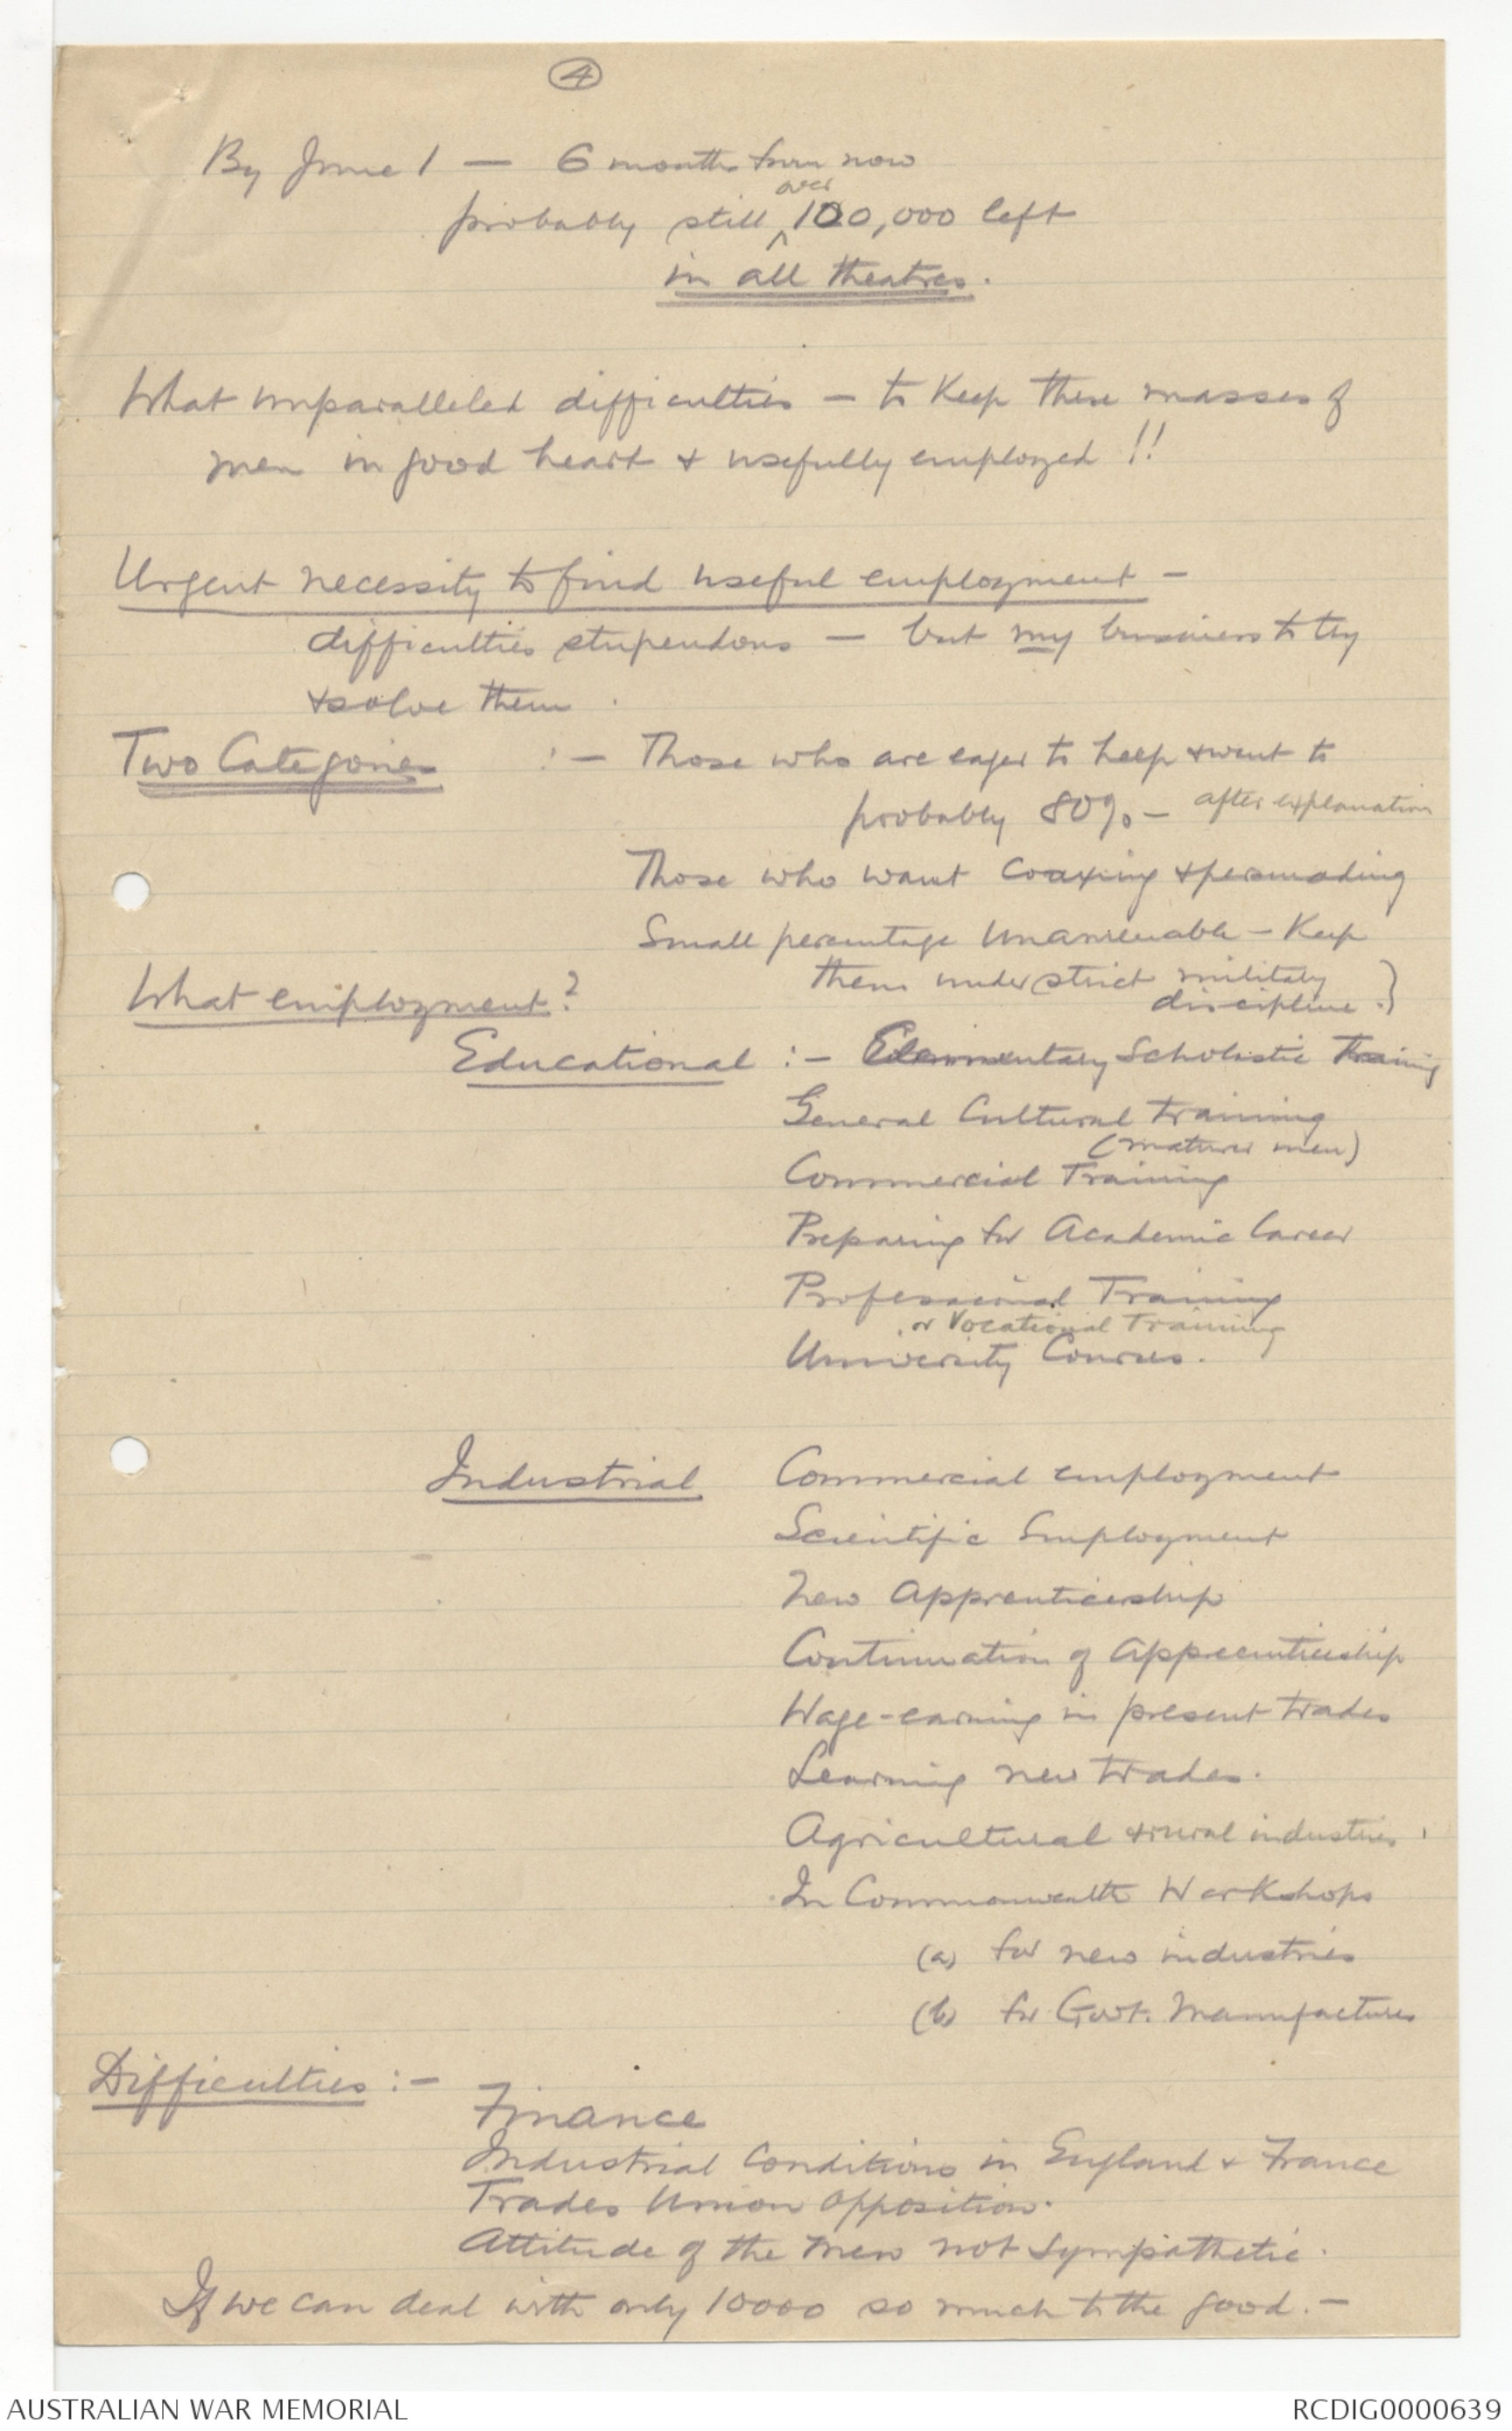 4
By June 1 — 6 months from now
probably still over 100,000 left
in all theatres.
What unparalleled difficulties — to keep these masses of
men in good heart & usefully employed !!
Urgent necessity to find useful employment —
difficulties stupendous — but my business to try
& solve them.
Two Categories :— Those who are eager to help & want to
probably 80% — after explanation
Those who want coaxing & persuading
Small percentage unamenable — Keep
them under strict military
discipline.)
What employment?
Educational :— Elementary Scholastic Training
General Cultural training
(maturer men)
Commercial Training
Preparing for Academic Career
Professional Training
or Vocational Training
University Courses.
Industrial Commercial employment
Scientific Employment
New Apprenticeship
Continuation of Apprenticeship
Wage-earning in present trades
Learning new trades.
Agricultural & rural industries.
In Commonwealth Workshops
(a) for new industries
(b) for Govt. Manufactures
Difficulties :—
Finance
Industrial Conditions in England & France
Trades Union Opposition.
Attitude of the men not sympathetic.
If we can deal with only 10000 so much to the good. —
AUSTRALIAN WAR MEMORIAL
RCDIG0000639